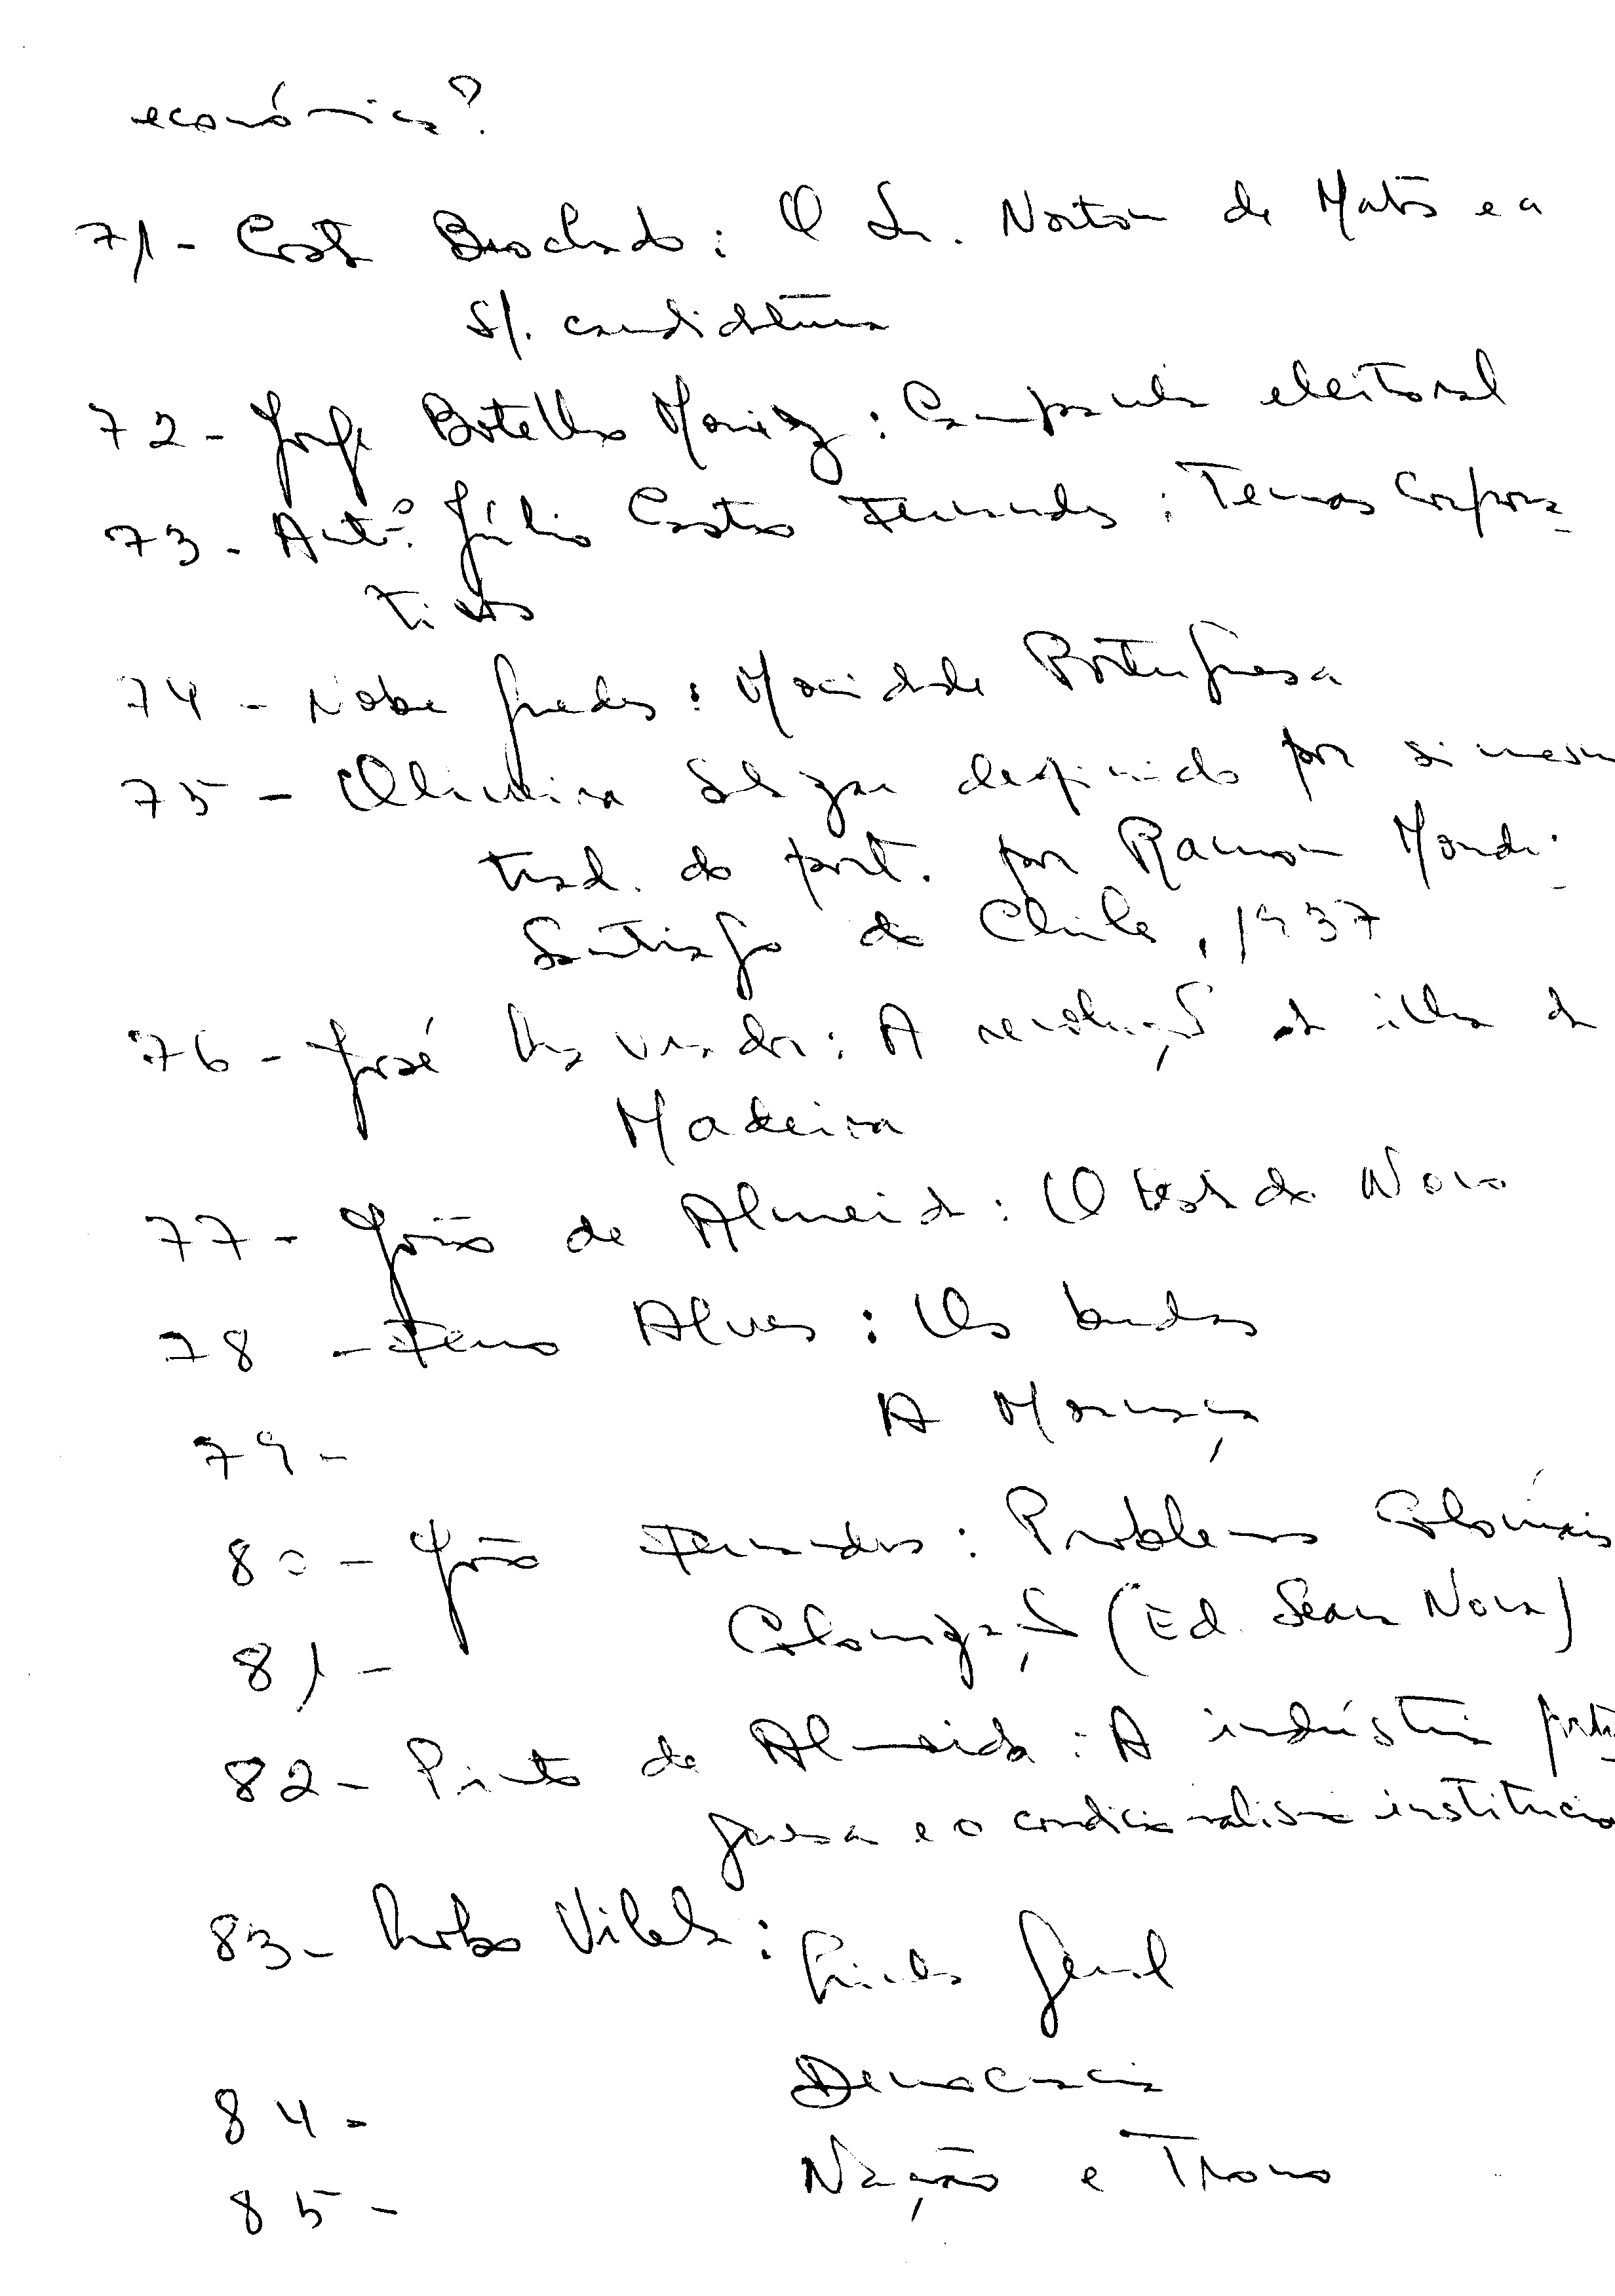 económica?
71 - Costa Brochado: O Sr. Norton de Matos e a
s/. candidatura
72 - Jorge Botelho Moniz: Campanha eleitoral
73 - Antº. Júlio Castro Fernandes: Temas Corpora-
tivos
74 - Nobre Guedes: Mocidade Portuguesa
75 - Oliveira Salazar definido por si mesm
trad. do port. por Ramon Mondi:
Santiago do Chile, 1937
76 - José : A revolução da ilha da
Madeira
77 - João de Almeida: O Estado Novo
78 - Ferro Alves: Os budas
A Mornaça
79 -
80 - João Fernandes: Problemas Coloniais
Colonização (Ed. Seara Nova)
81 -
82 - Pinto de Almeida: A indústria portu
guesa e o condicionalismo institucio
83 - Lobo Vilela: Crise Geral
Democracia
84 -
Nação e Trono
85 -